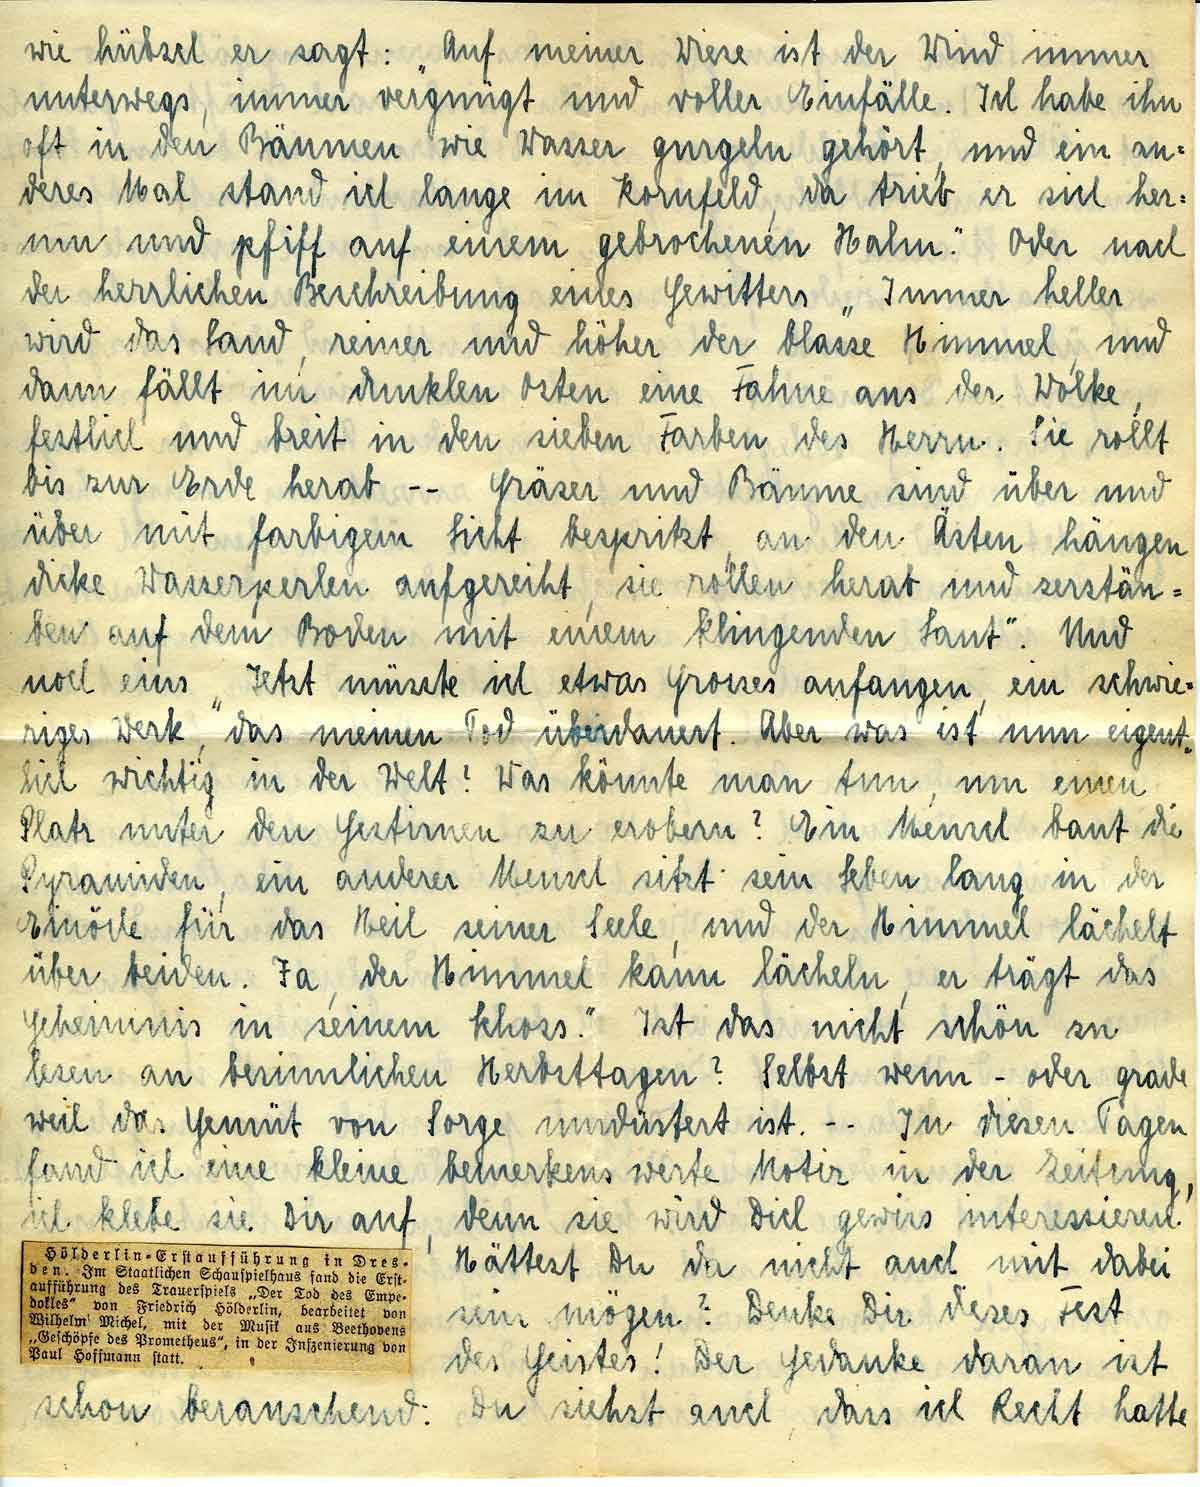 wie hübsch er sagt: „Auf meiner Wiese ist der Wind immer
unterwegs, immer vergnügt und voller Einfälle. Ich habe ihn
oft in den Bäumen wie Wasser gurgeln gehört, und ein an=
deres Mal stand ich lange im Kornfeld, da trieb er sich her=
um und pfiff auf einem gebrochenen Halm." Oder nach
der herrlichen Beschreibung eines Gewitters „Immer heller
wird das Land, reiner und höher der blasse Himmel, und
dann fällt im dunklen Osten eine Fahne aus der Wolke,
festlich und breit in den sieben Farben des Herrn. Sie rollt
bis zur Erde herab -- Gräser und Bäume sind über und
über mit farbigem Licht bespritzt, an den Ästen hängen
dicke Wasserperlen aufgereiht, sie rollen herab und zerstäu=
ben auf dem Boden mit einem klingenden Laut". Und
noch eins „Jetzt müsste ich etwas Grosses anfangen, ein schwie=
riges Werk, das meinen Tod überdauert. Aber was ist nun eigent=
lich wichtig in der Welt? Was könnte man tun, um einen
Platz unter den Gestirnen zu erobern? Ein Mensch baut die
Pyramiden, ein anderer Mensch sitzt sein Leben lang in der
Einöde für das Heil seiner Seele, und der Himmel lächelt
über beiden. Ja, der Himmel kann lächeln, er trägt das
Geheimnis in seinem Schoss." Ist das nicht schön zu
lesen an besinnlichen Herbsttagen? Selbst wenn - oder grade
weil das Gemüt von Sorge umdüstert ist. -- In diesen Tagen
fand ich eine kleine bemerkenswerte Notiz in der Zeitung,
ich klebe sie Dir auf, denn sie wird Dich gewiss interessieren.
Hölderlin-Erstaufführung in Dres-
den. Im Staatlichen Schauspielhaus fand die Erst-
aufführung des Trauerspiels „Der Tod des Empe-
dokles" von Friedrich Hölderlin, bearbeitet von
Wilhelm Michel, mit der Musik aus Beethovens
„Geschöpfe des Prometheus", in der Inszenierung von
Paul Hoffmann statt.
Hättest Du da nicht auch mit dabei
sein mögen? Denke Dir dieses Fest
des Geistes! Der Gedanke daran ist
schon berauschend. Du siehst auch, dass ich Recht hatte